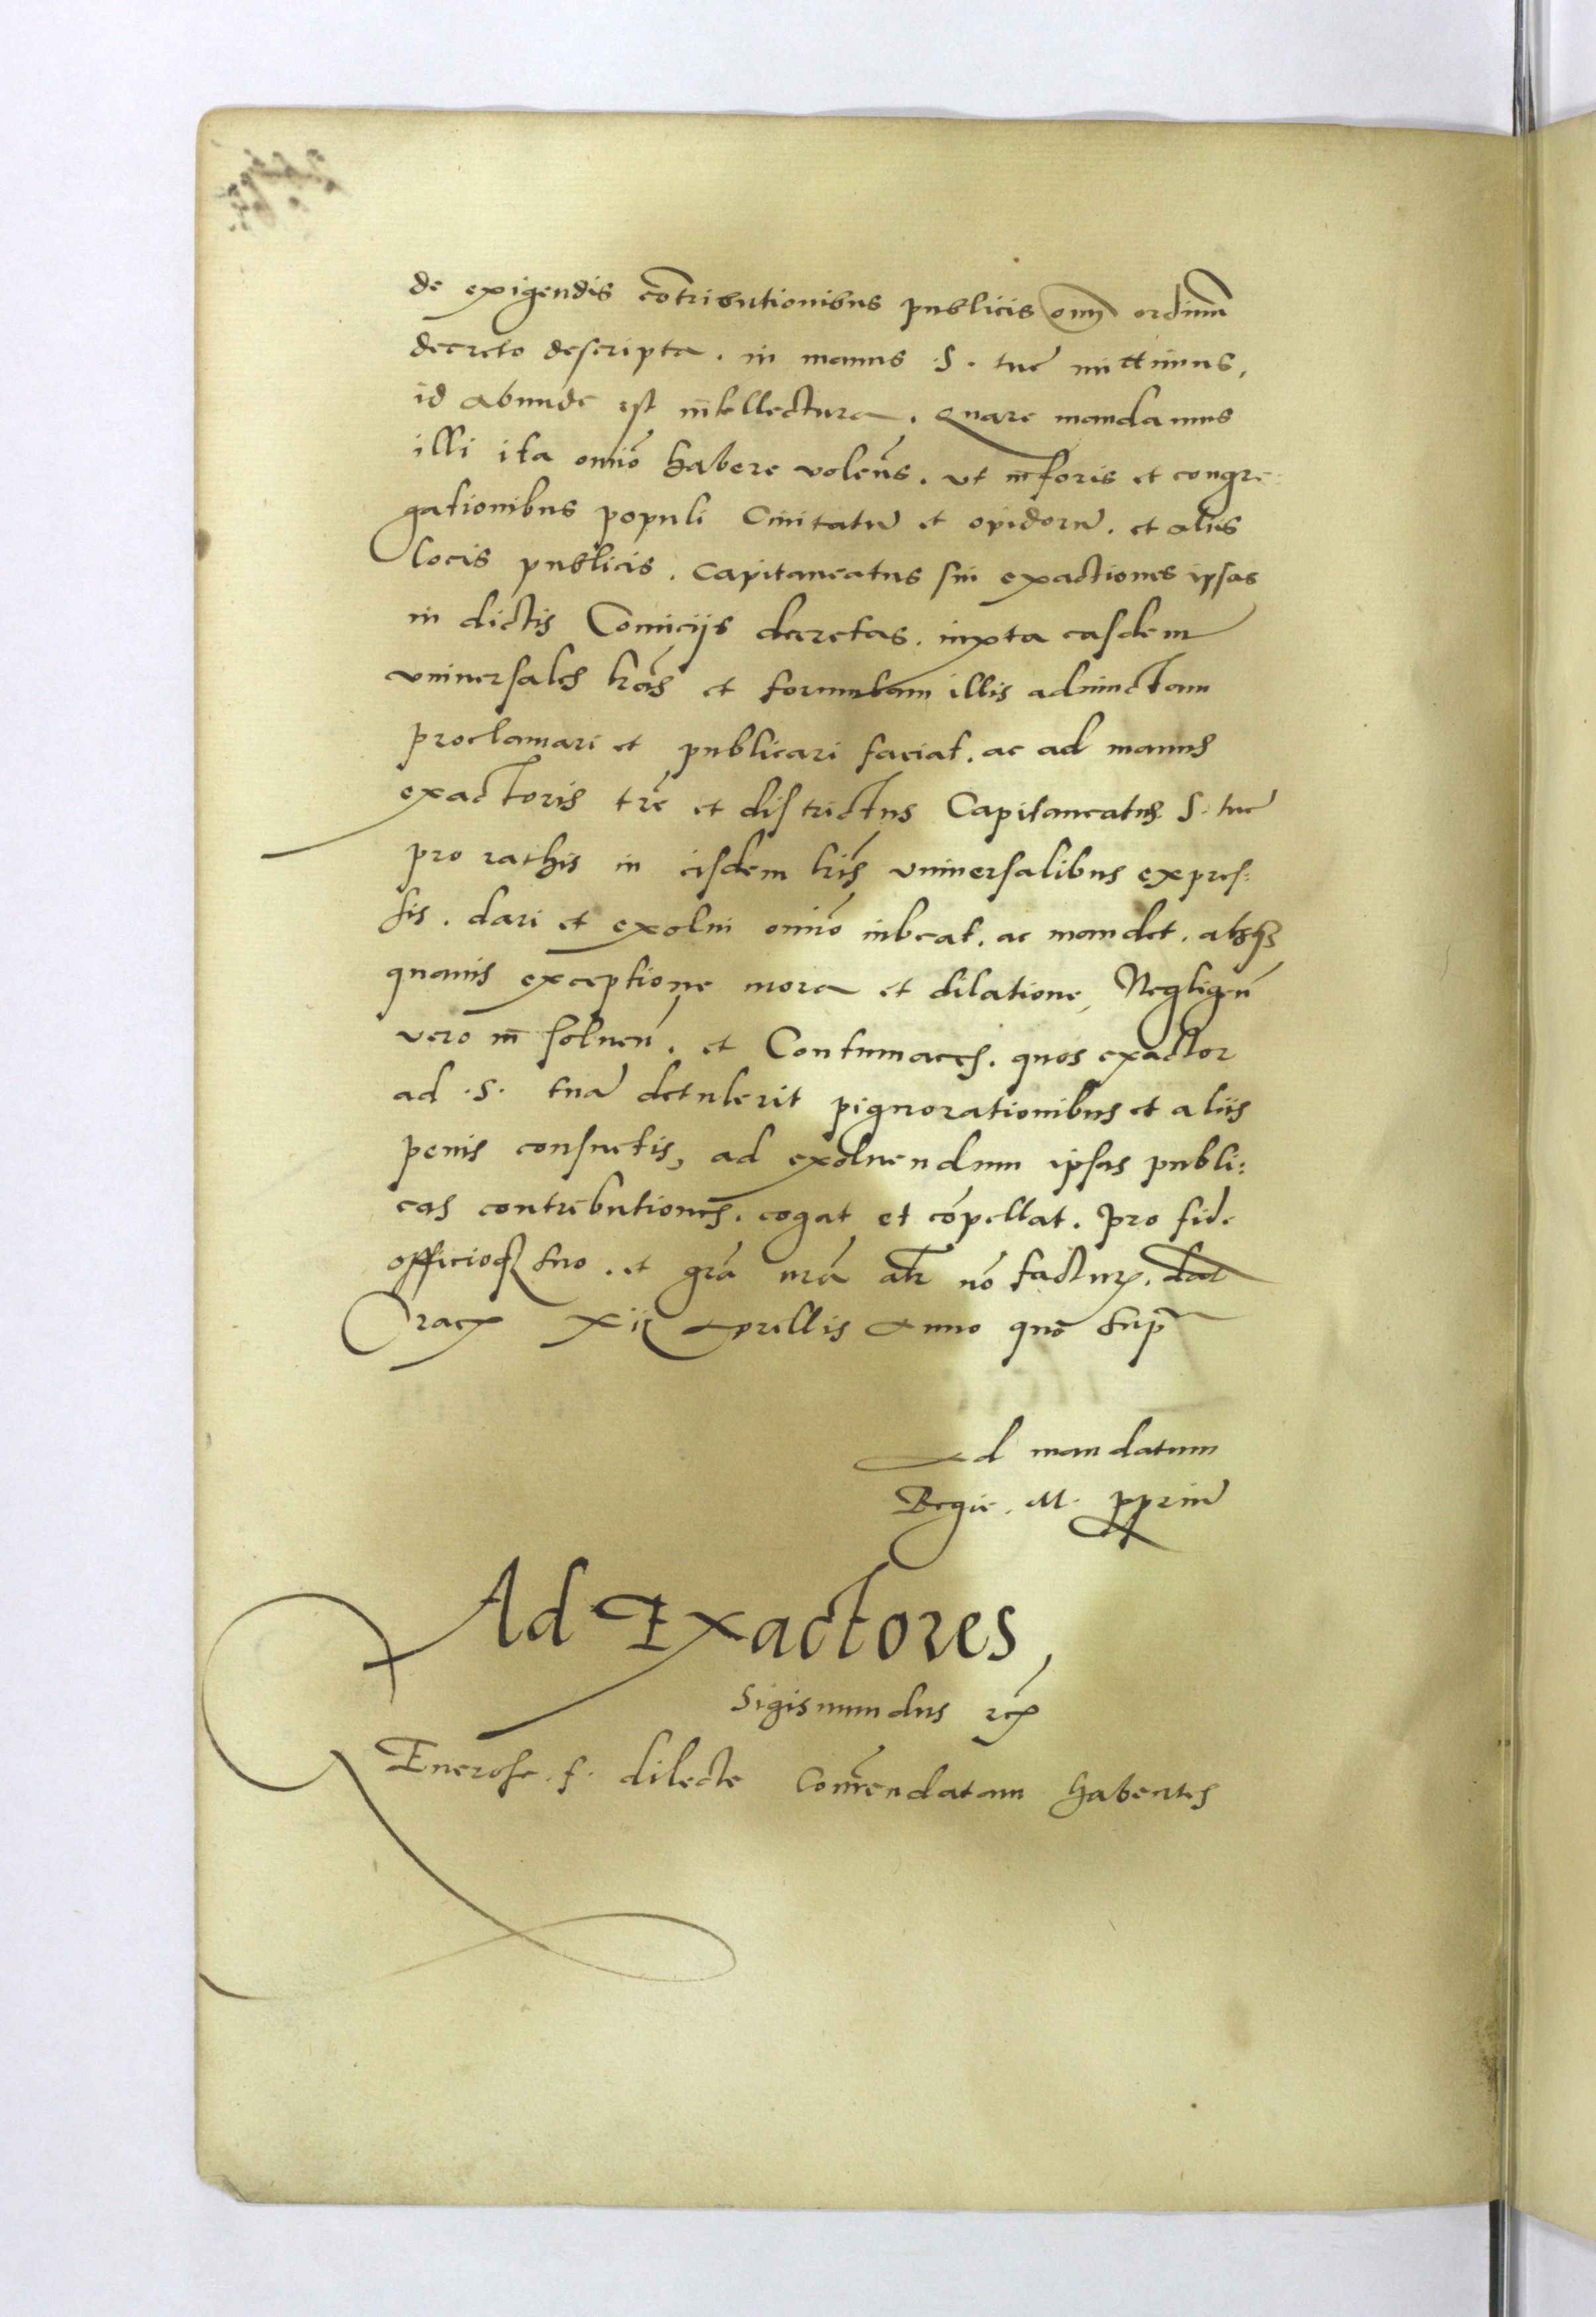 de exigendis cõtributionibus publicis om̃ ordinũ
decreto descripta. in manus .S. tue mittimus,
id abunde est intellectura. Quare mandamus
illi ita omĩo habere volẽns. ut in foris et congre-
gationibus populi Civitatũ et opidorũ. et aliis
locis publicis. Capitaneatus sui exactiones ipsas
in dictis Comicijs decretas. iuxta easdem
universales lrãs et formulam illis adiunctam
proclamari et publicari faciat. ac ad manus
exactoris trẽ et districtus Capitaneatus S. tue
pro rathis in eisdem lrĩs universalibus expres-
sis. dari et exolvi omĩo iubeat. ac mandet. absq3
quavis exceptione mora et dilatione, Negligẽn
vero in solven̄. et Contumaces. quos exactor
ad .S. tuã detulerit pignorationibus et aliis
penis consuetis, ad exolvendum ipsas publi:
cas contributiones. cogat et cõpellat. Pro fide
officioq3 suo. et grã nrã alr̃ nõ factur̃. dat
Crac̃ xij Aprillis Anno quo sup̃
Ad mandatum
Regie. M. ꝓpriũ
Ad Exactores,
Sigismundus rex
Enerose. f. dilecte Com̃endatam habentes